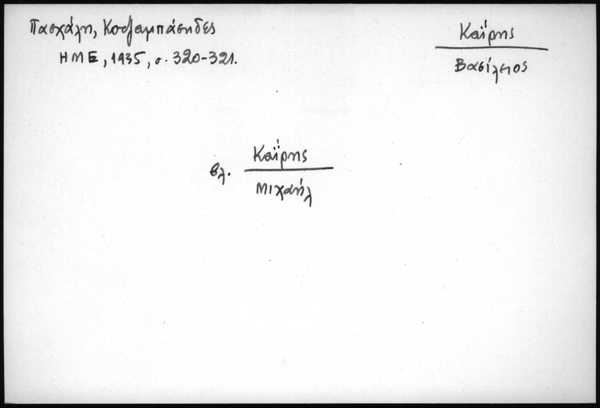 Πασχάλη, Κοτζαμπάσηδες
ΗΜΕ, 1935, σ. 320-321.
Καΐρης
Βασίλειος
βλ. Καΐρης
Μιχαήλ